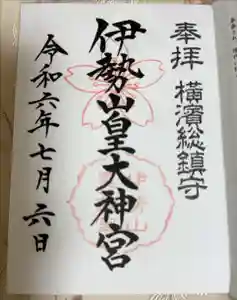 奉拝 横濱総鎮守
伊勢山皇大神宮
令和六年七月六日